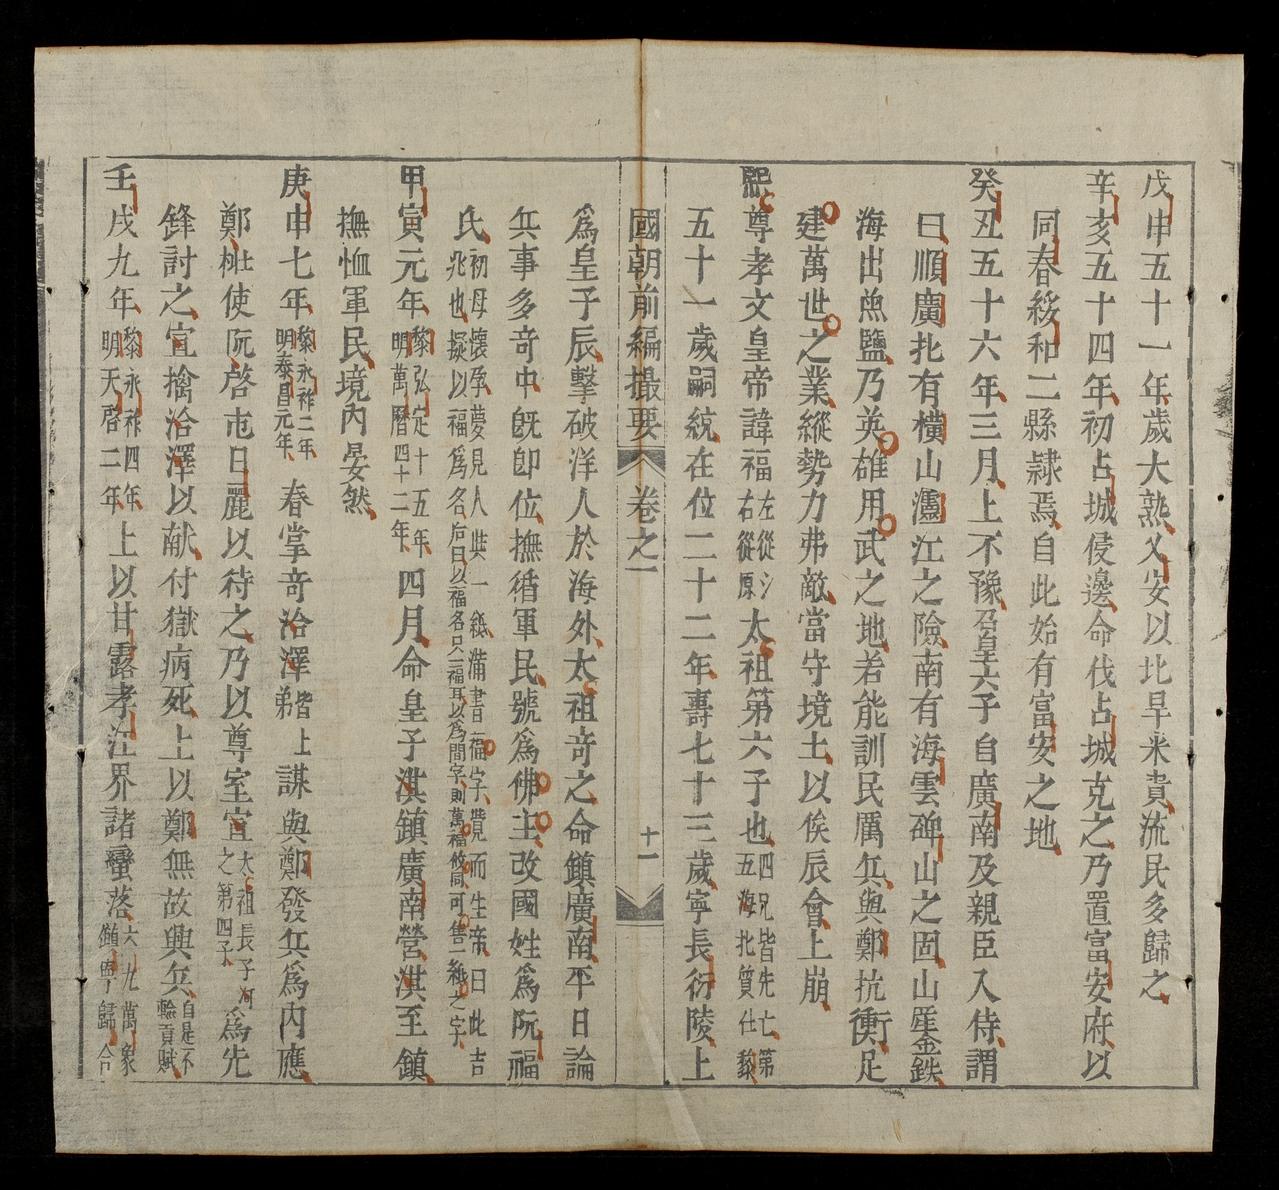 戊申五十一年歲大熟乂安以北旱米貴流民多歸之
辛亥五十四年初占城侵邊命伐占城克之乃置富安府以
同春綏和二縣隷焉自此始有富安之地
癸丑五十六年三月上不豫召皇六子自廣南及親臣入侍謂
曰順廣北有橫山𤅷江之險南有海雲碑山之固山產金鉄
海出魚鹽乃英雄用武之地若能訓民厲兵與鄭抗衡足
建萬世之業縱勢力弗敵當守境土以俟辰會上崩
熙尊孝文皇帝諱福左從氵右從原太祖第六子也四兄皆先亡第五海北質仕黎
五十一歲嗣統在位二十二年壽七十三歲寧長衍陵上
國朝前編撮要 卷之一 十一
爲皇子辰擊破洋人於海外太祖奇之命鎮廣南平日論
兵事多奇中旣卽位撫循軍民號爲佛主改國姓爲阮福
氏初母懷孕夢見人與一紙滿書福字覺而生帝曰此吉兆也擬以福爲名后曰以福名只一福耳以爲間字則萬福攸同可售一紙之字
甲寅元年黎弘定十五年明萬曆四十二年四月命皇子淇鎮廣南營淇至鎮
撫恤軍民境內晏然
庚申七年黎永祚二年明泰昌元年春掌奇洽澤皆上弟謀與鄭發兵爲內應
鄭梉使阮啓屯日麗以待之乃以尊室宣太祖長子河之第四子爲先
鋒討之宣擒洽澤以献付獄病死上以鄭無故興兵自是不輸貢賦
壬戌九年黎永祚四年明天啓二年上以甘露孝江界諸蠻落六九萬象